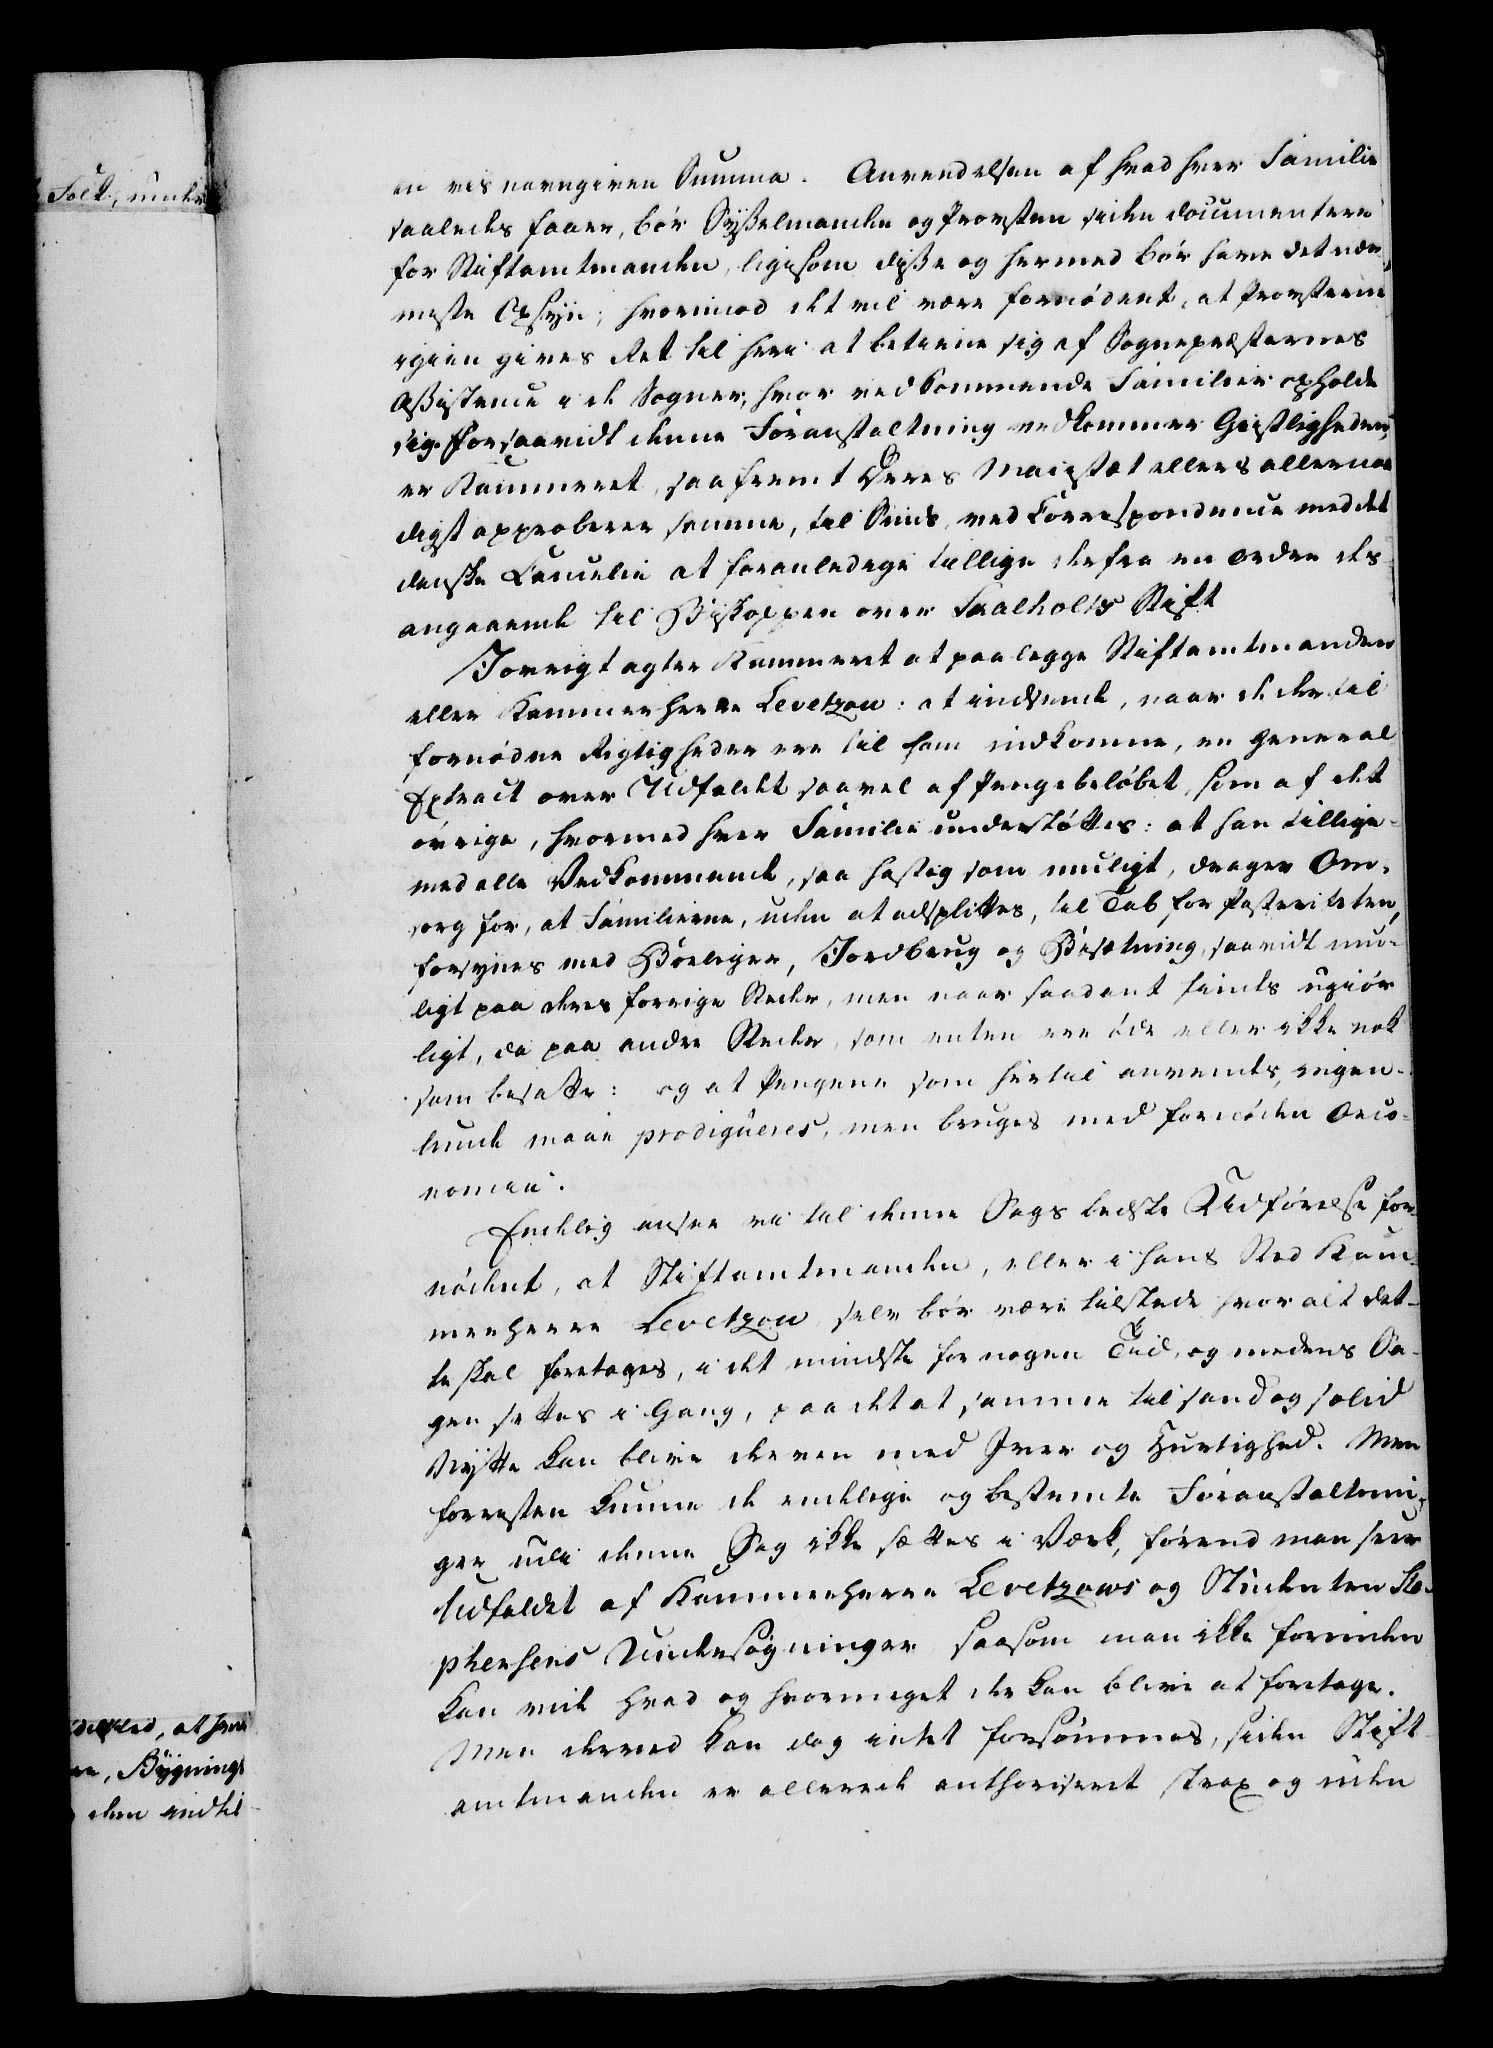 en vis navngiven Summa. Anvendelsen af hvad hver Familie
saaledes faaer, bör Syßelmanden og Provsten siden documentere
for Stiftamtmanden, ligesom diße og hermed bör have det nær-
meste Opsyn; hvorimod det vil være fornödent, at Provsterne
igien gives Ret til heri at betiene sig af Sognepræsternes
Aßistence i de Sogner, hvor vedkommende Familier opholde
sig. Forsaavidt denne Foranstaltning vedkommer Geistligheden,
er Kammeret, saafremt Deres Maiestæt ellers allernaa-
digst approberer samme, til Sinds, ved Correspondence med det
danske Cancelie at foranledige tillige derfra en Ordre des-
angaaende til Biskoppen over Skalholts Stift
Jovrigt agter Kammeret at paalegge Stiftamtmanden
eller Kammerherre Levetzou: at indsende, naar de dertil
fornödne Rigtigheder ere til ham indkomne, en General
Extract over Udfaldet saavel af Pengebelöbet, som af det
övrige, hvormed hver Familie understöttes: at han tillige-
med alle Vedkommende, saa hastig som muligt, drager Om-
sorg for, at Familierne, uden at adsplittes, til Tab for Posteriteten,
forsynes med Boeliger, Jordbrug og Besætning, saavidt mue-
ligt paa deres forrige Steder, men naar saadant findes ugiör-
ligt, da paa andre Steder, som enten ere öde eller ikke nok
som besatte: og at Pengene som hertil anvendes, ingen-
lunde maae prodigueres, men bruges med fornöden Oeco-
nomie.
Endelig ansee vi til denne Sags bedste Udförelse for-
nödent, at Stiftamtmanden, eller i hans Sted Kam-
merherre Levetzou, selv bör være tilstede hvor alt det-
te skal foretages, i det mindste for nogen Tid, og medens Sa-
gen settes i Gang, paa det at samme til sand og solid
Nytte kan blive dreven med Iver og Hurtighed. Men
forresten kunne de endelige og bestemte Foranstaltnin-
ger udi denne Sag ikke sættes i Værk, förend man seer
Udfaldet af Kammerherre Levetzows og Studenten Ste-
phensens Undersögninger saasom man ikke forinden
kan vide hvad og hvormeget der kan blive at foretage.
Men derved kan dog intet forsömmes, siden Stift-
amtmanden er allerede authoriseret strax og uden
Folk, under
at hver
Bygnings
dem indtil